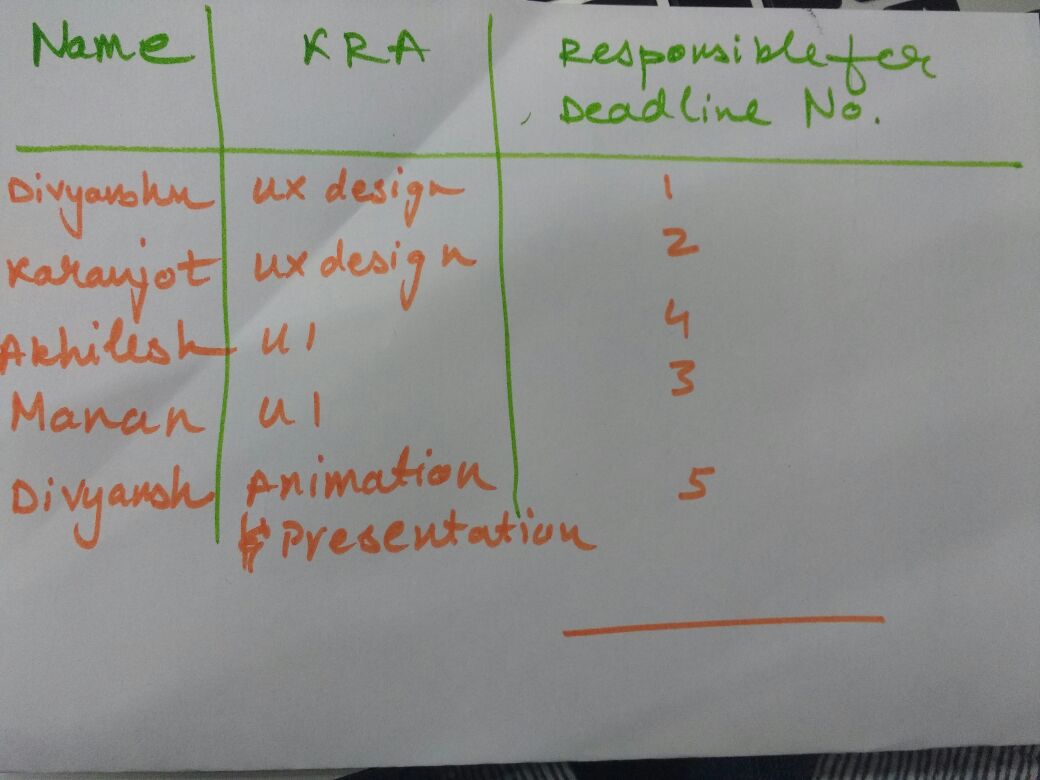 Name KRA Responsible for
Deadline No.
Divyanshu UX design 1
Karanjot UX design 2
Akhilesh UI 4
Manan UI 3
Divyansh Animation 5
& Presentation